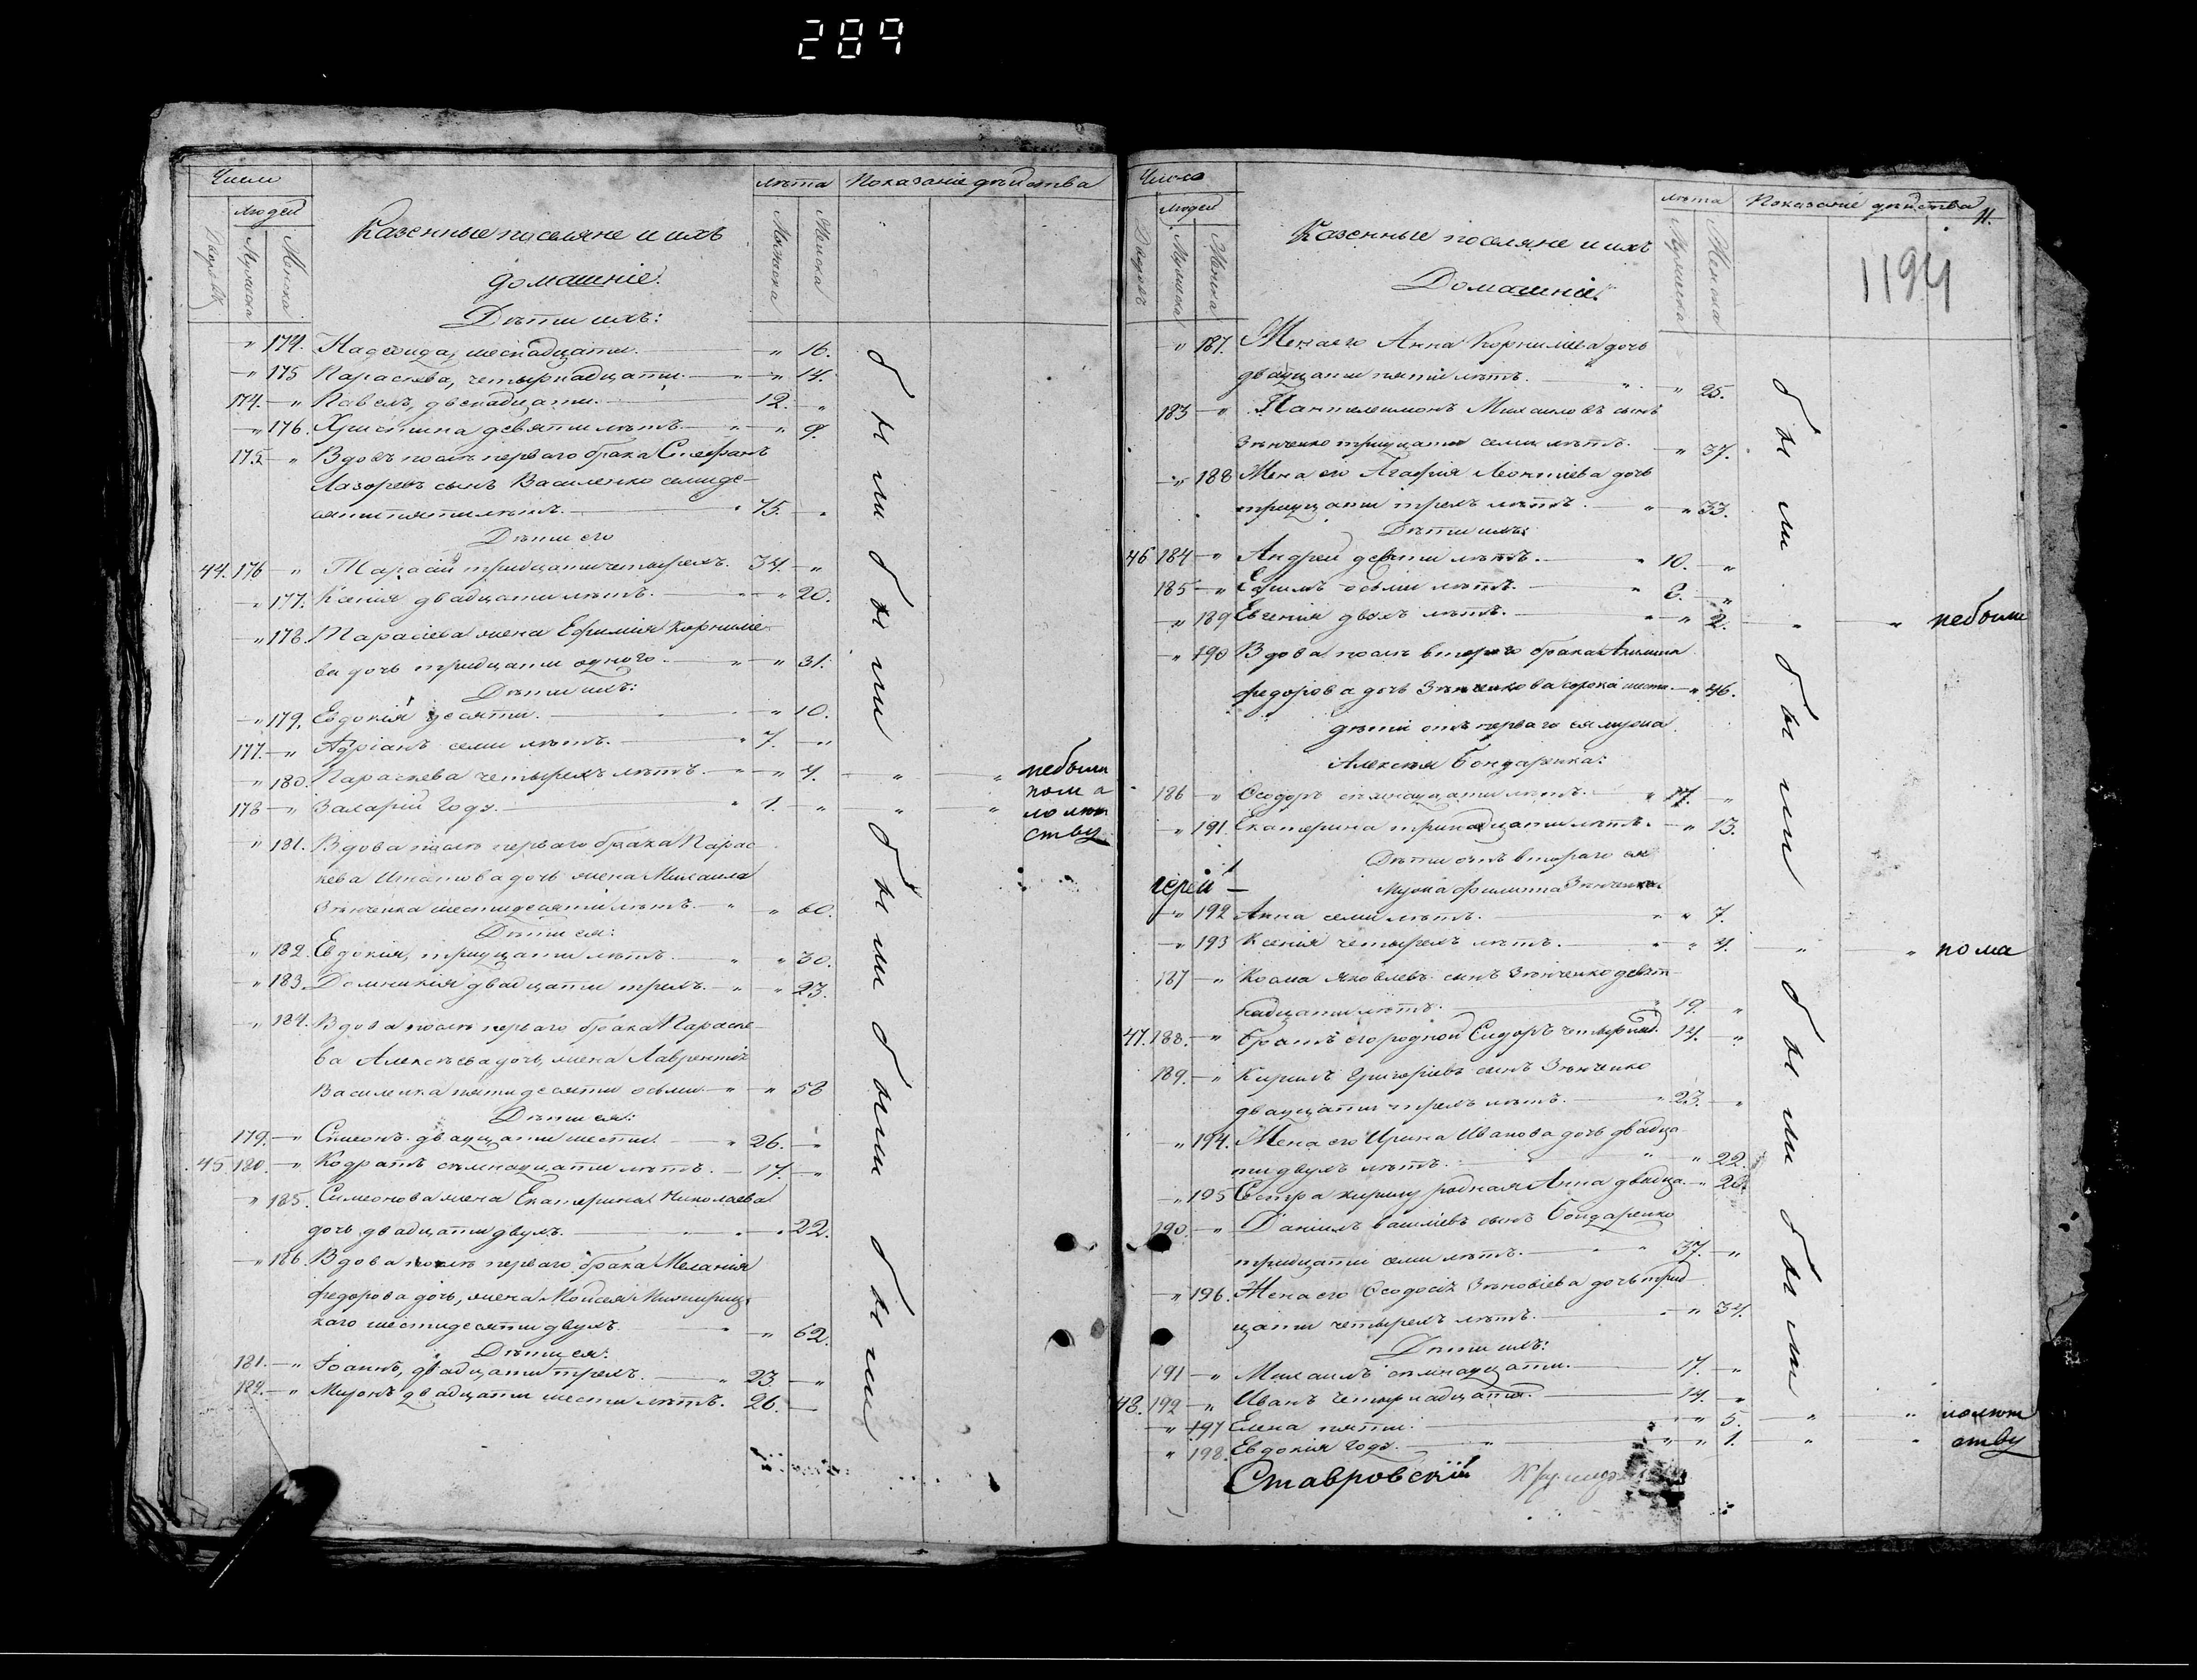 289
Число
людей
Дворовъ
Мужска
Женска
Казенные поселяне и ихъ
домашніе.
лѣта
Мужска
Женска
Показаніе дѣйства
Дѣти ихъ:
" 174. шеснадцати. " 16.
" 175 Параскева, четырнадцати. " 14.
174. " Павелъ, двенадцати. 12. "
" 176. Христина девяти лѣтъ. " 9.
175 " Вдовъ послѣ перваго брака Стефанъ
Лазоревъ сынъ Василенко семиде-
сяти пяти лѣтъ. 75. "
Дѣти его
44. 176 " Тарасій тридцати четырехъ. 34. "
" 177. Ксенія двадцати лѣтъ. " 20.
" 178. Тарасіева жена Ефимія Корниліе-
ва дочь тридцати одного. " 31.
Дѣти ихъ:
" 179. Евдокія десяти. " 10.
177. " Адріанъ семи лѣтъ. 7. "
" 180. Параскева четырехъ лѣтъ. " 4. " " небыли
178 " Валарій году. 1. " " " по ма
лолѣт
ству
" 181. Вдова послѣ перваго брака Парас
кева Игнатова дочь жена Михаила
Зѣнченка шестидесяти лѣтъ. " 60.
Дѣти ея:
" 182. Евдокия, тридцати лѣтъ. " 30.
" 183. Домникія двадцати трехъ. " 23.
" 184. Вдова послѣ перваго брака Параске
ва Алексѣева дочь, жена Лаврентія
Василенка пятидесяти осьми " 58
Дѣти ея:
179. " Симеонъ двадцати шести. 26. "
45. 180. " Кодратъ семнадцати лѣтъ. 17. "
" 185. Симеонова жена Екатерина Николаева
дочь двадцати двухъ. " 22.
" 186. Вдова послѣ перваго брака Меланія
Федорова дочь, жена Мойсея
каго шестидесяти двухъ. " 62.
Дѣти ея:
181. " Іоаннъ, двадцати трехъ. 23 "
182. " Миронъ двадцати шести лѣтъ. 26.
были были были были были
Число
людей
Дворовъ
Мужска
Женска
Казенные поселяне и ихъ
Домашніе.
лѣта
Мужска
Женска
Показаніе дѣйства
11.
1194
" 187. Жена его Анна Корниліева дочь
двадцати пяти лѣтъ. " 25.
183 " Пантелеимонъ Михаиловъ сынъ
Зѣнченко тридцати семи лѣтъ. " 37.
" 188 Жена его Агафія Леонтіева дочь
тридцати трехъ лѣтъ. " 33.
Дѣти ихъ:
46 184 " Андрей девяти лѣтъ. 10. "
185 " Ефимъ осьми лѣтъ. 8. "
" 189 Евгенія двухъ лѣтъ. " 2. " " небыли
" 190 Вдова послѣ втораго брака
Федорова дочь Зѣнченкова сорока шести " 46.
дѣти отъ перваго ея мужа
Алексѣя Бондаренка:
186 " Феодоръ семнадцати лѣтъ. 17. "
" 191. Екатерина тринадцати лѣтъ. " 13.
Дѣти отъ втораго ея
мужа Филиппа Зѣнченка
іерей
" 192 Анна семи лѣтъ. " 7.
" 193 Ксенія четырехъ лѣтъ. " 4. " " по ма
187 " Косма Яковлевъ сынъ Зѣнченко девят
надцати лѣтъ. 19. "
47. 188. " Братъ его родной Сидоръ четырнад. 14. "
189. " Кирилъ Григоріевъ сынъ Зѣнченко
двадцати трехъ лѣтъ. 23. "
" 194. Жена его Ирина Иванова дочь двадца
ти двухъ лѣтъ. " 22.
" 195 Сестра Кирилу родная Анна двадца. " 20.
190. " Даніилъ сынъ Бондаренко
тридцати семи лѣтъ. 37. "
" 196. Жена его Феодосія Зѣновіева дочь трид
цати четырехъ лѣтъ. " 34.
Дѣти ихъ:
191 " Михаилъ семнадцати. 17. "
48. 192 " Иванъ четырнадцати. 14. "
" 197 Елена пяти. " 5. " " лолѣт
" 198. Евдокія году. " 1. " " ству
Ставровскій
были были были были